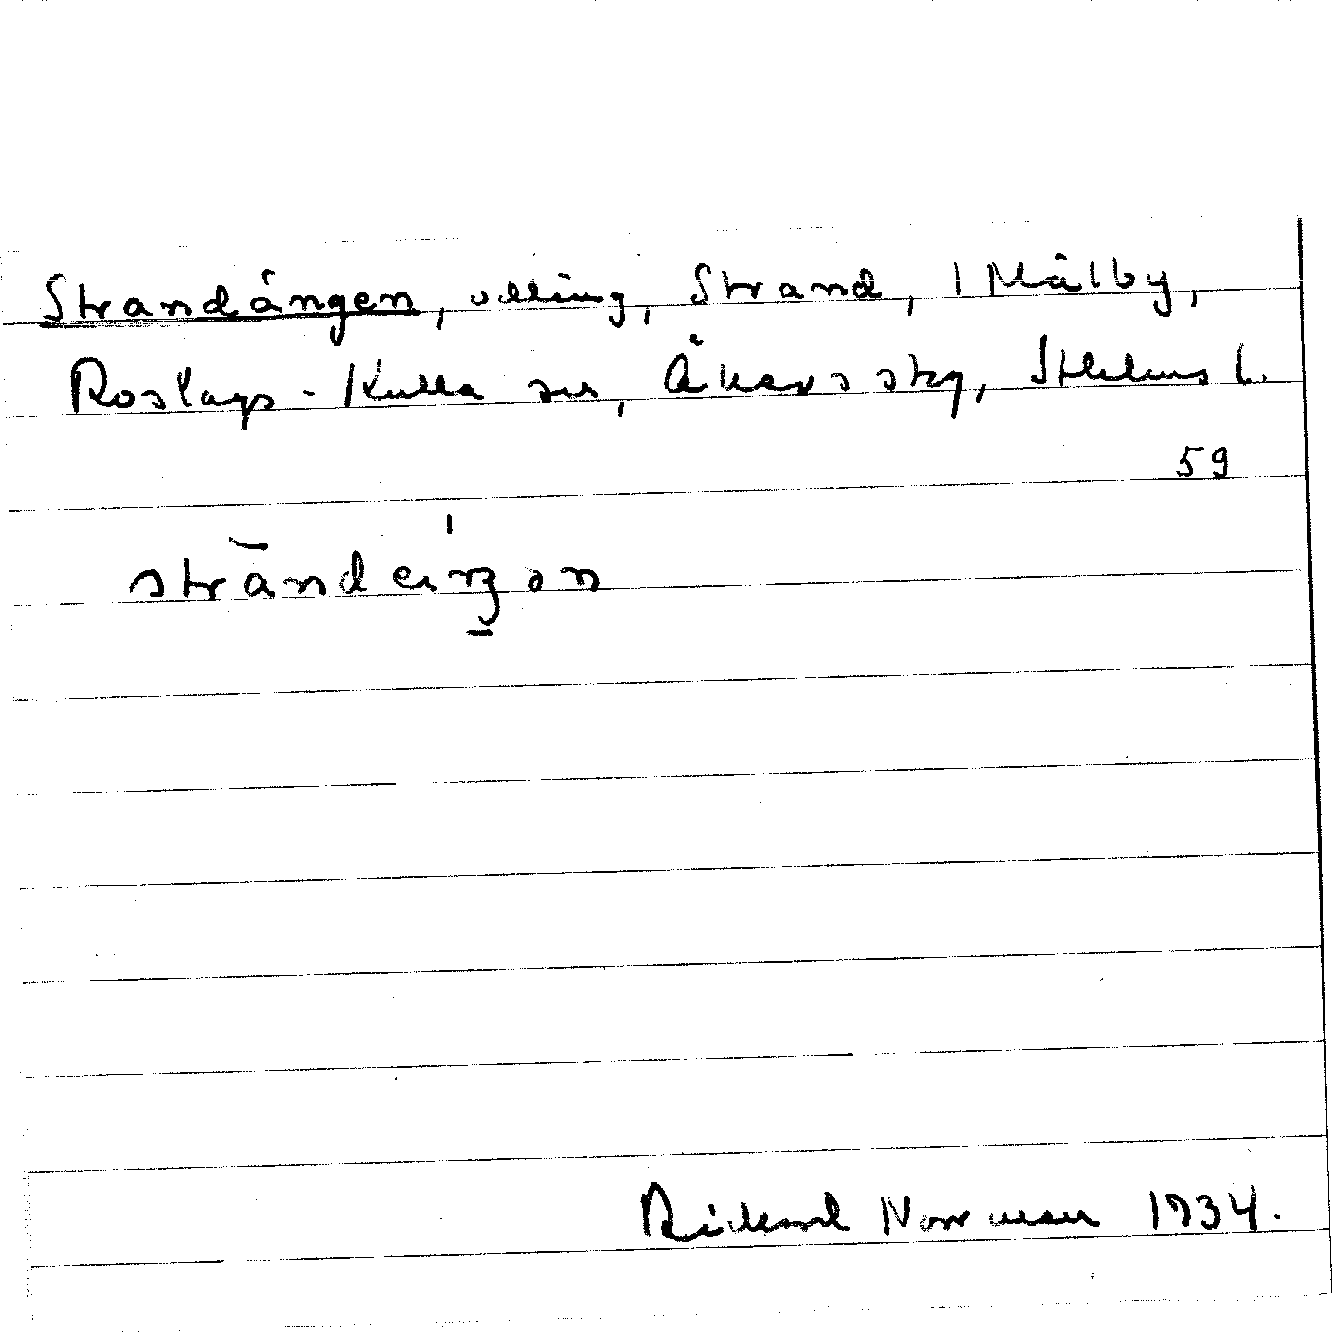 Strandängen, odling, Strand, 1 Målby,
Roslags-Kulla sn, Åkers skg, Sthlms l.
59
strandäŋən
Rickard Norrman 1934.